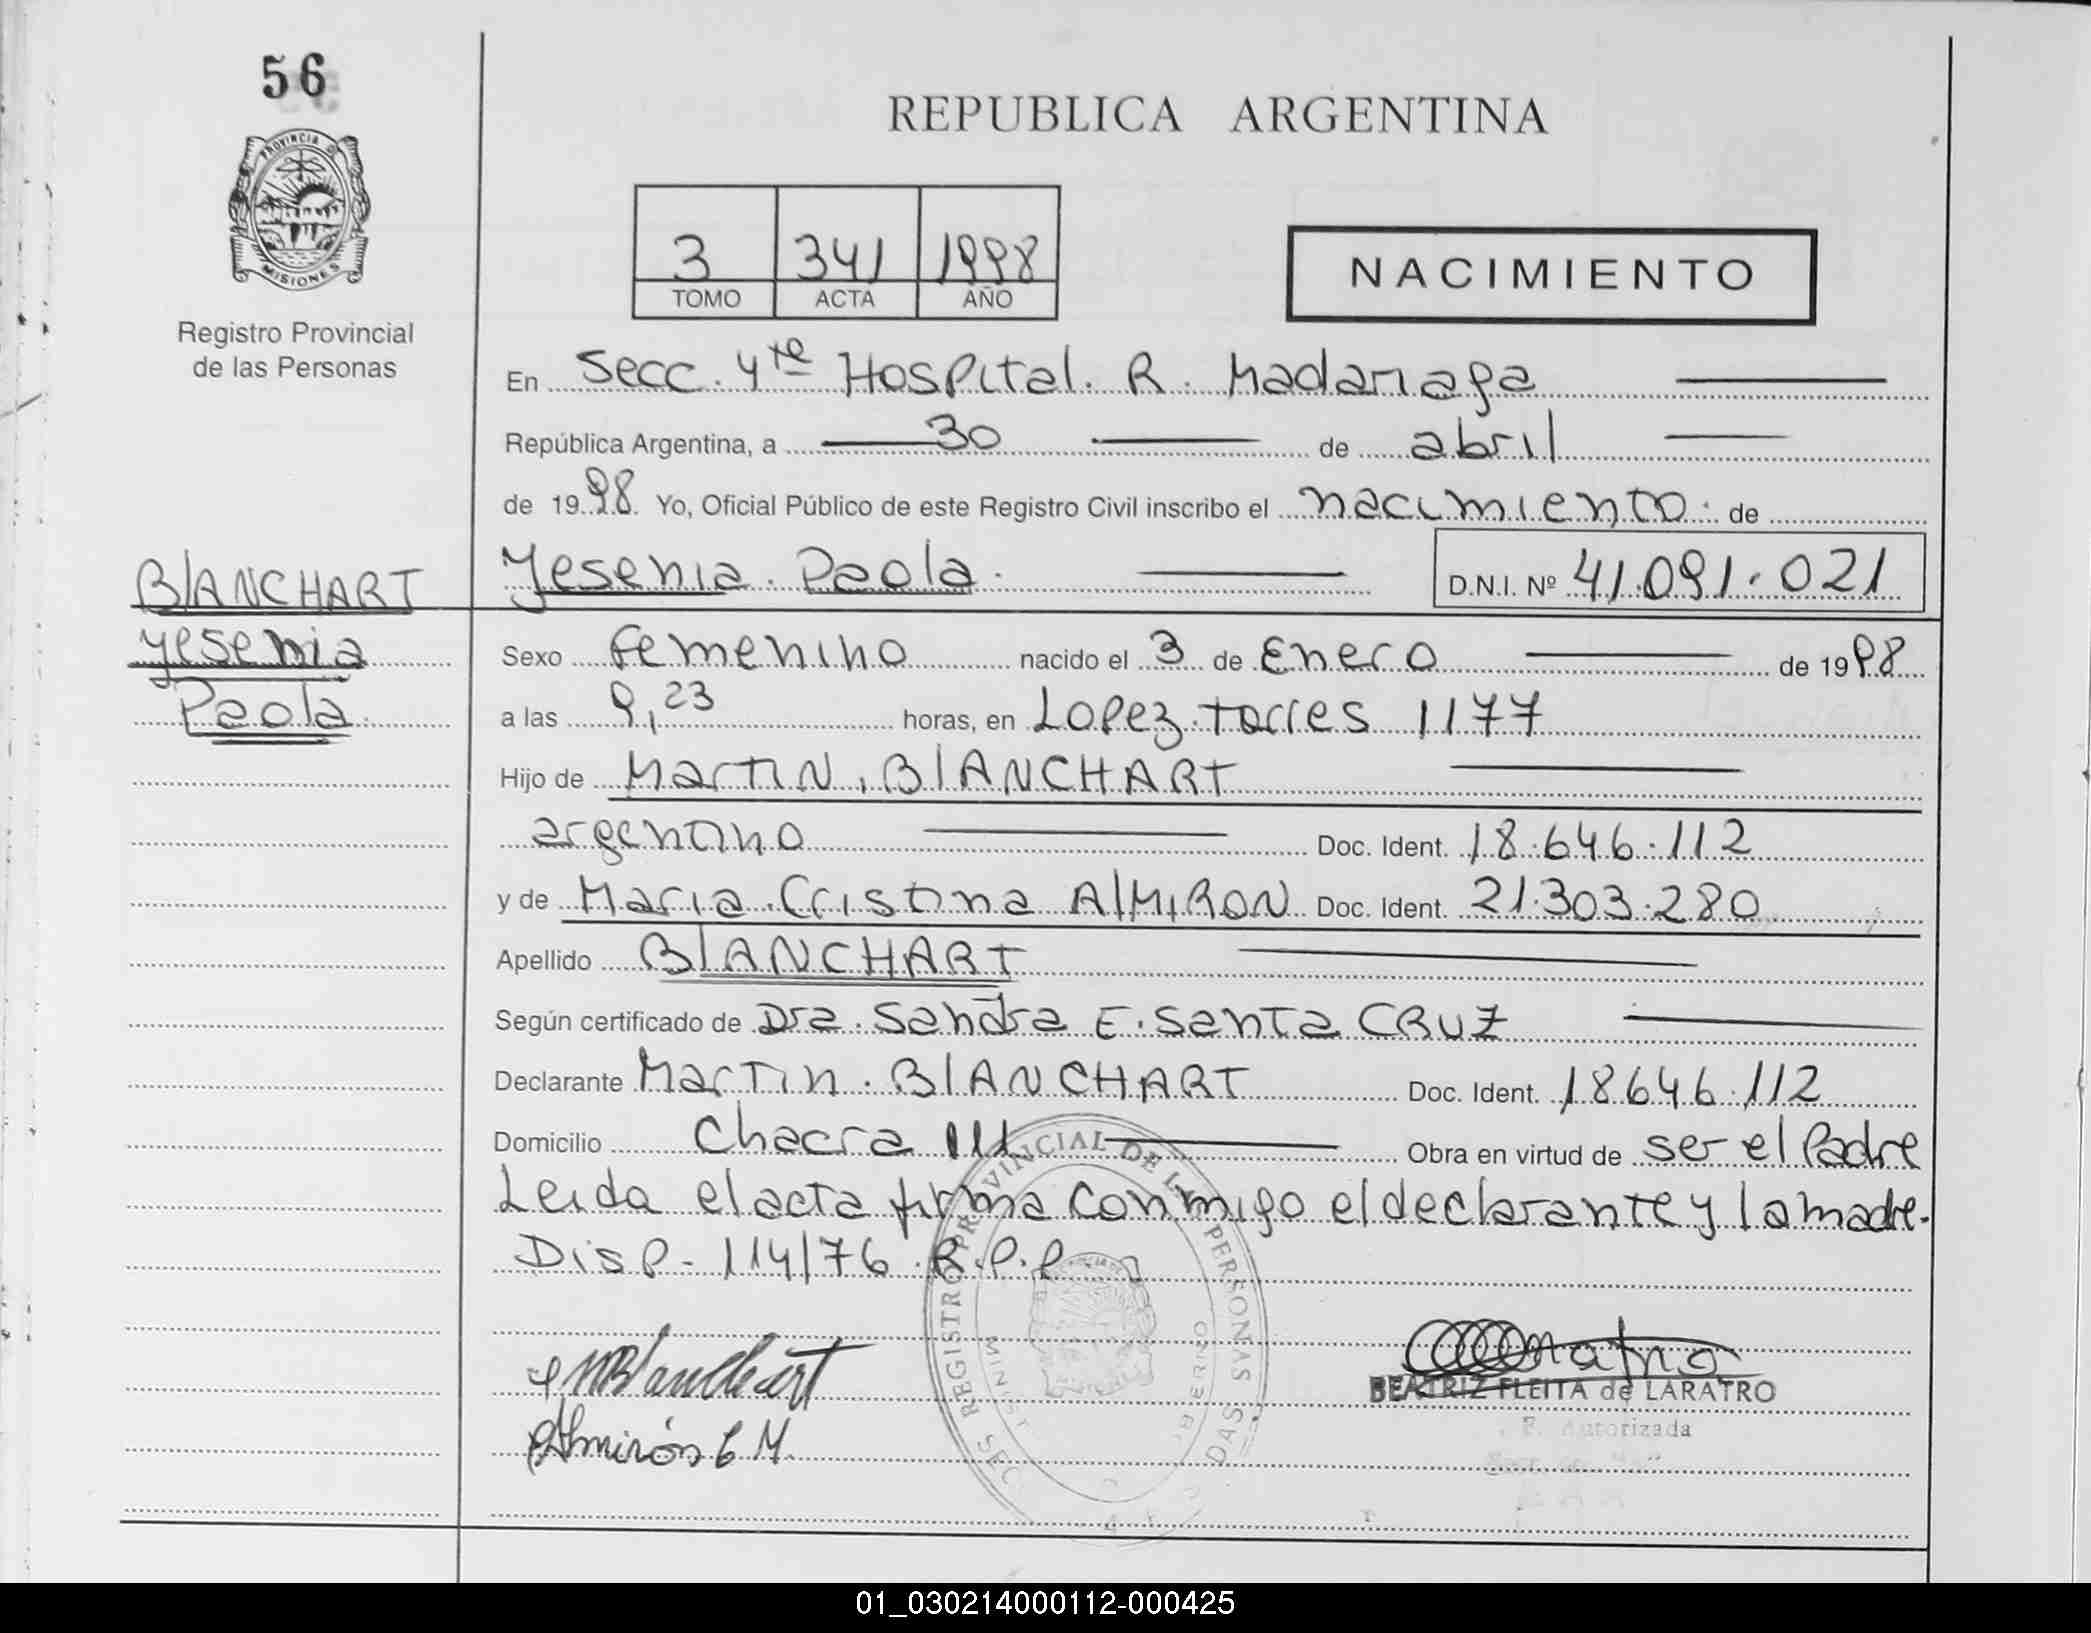 56
REPUBLICA ARGENTINA
PROVINCIA D
MISIONES
Registro Provincial
de las Personas
3 341 1998
TOMO ACTA AÑO
NACIMIENTO
En Secc. 4te Hospital. R. Madariaga
República Argentina, a 30 de abril
de 1998. Yo, Oficial Público de este Registro Civil inscribo el nacimiento. de
Yesenia Paola. D.N.I. Nº 41.091.021
BLANCHART
Yesenia
Paola
Sexo femenino nacido el 3 de Enero de 1998
a las 9,23 horas, en Lopez torres 1177
Hijo de Martin, BLANCHART
argentino Doc. Ident. 18.646.112
y de Maria Cristina ALMIRON Doc. Ident. 21.303.280
Apellido BLANCHART
Según certificado de Dra. Sandra E. Santa CRUZ
Declarante Martin. BLANCHART Doc. Ident. 18646.112
Domicilio Chacra 111 Obra en virtud de ser el Padre
Leida el acta firma conmigo el declarante y la madre.
Disp- 114/76 R.P.P
REGISTRO PROVINCIAL DE LAS PERSONAS
MBlanchart
Almirón C M.
BEATRIZ FLEITA de LARATRO
Autorizada
01_030214000112-000425